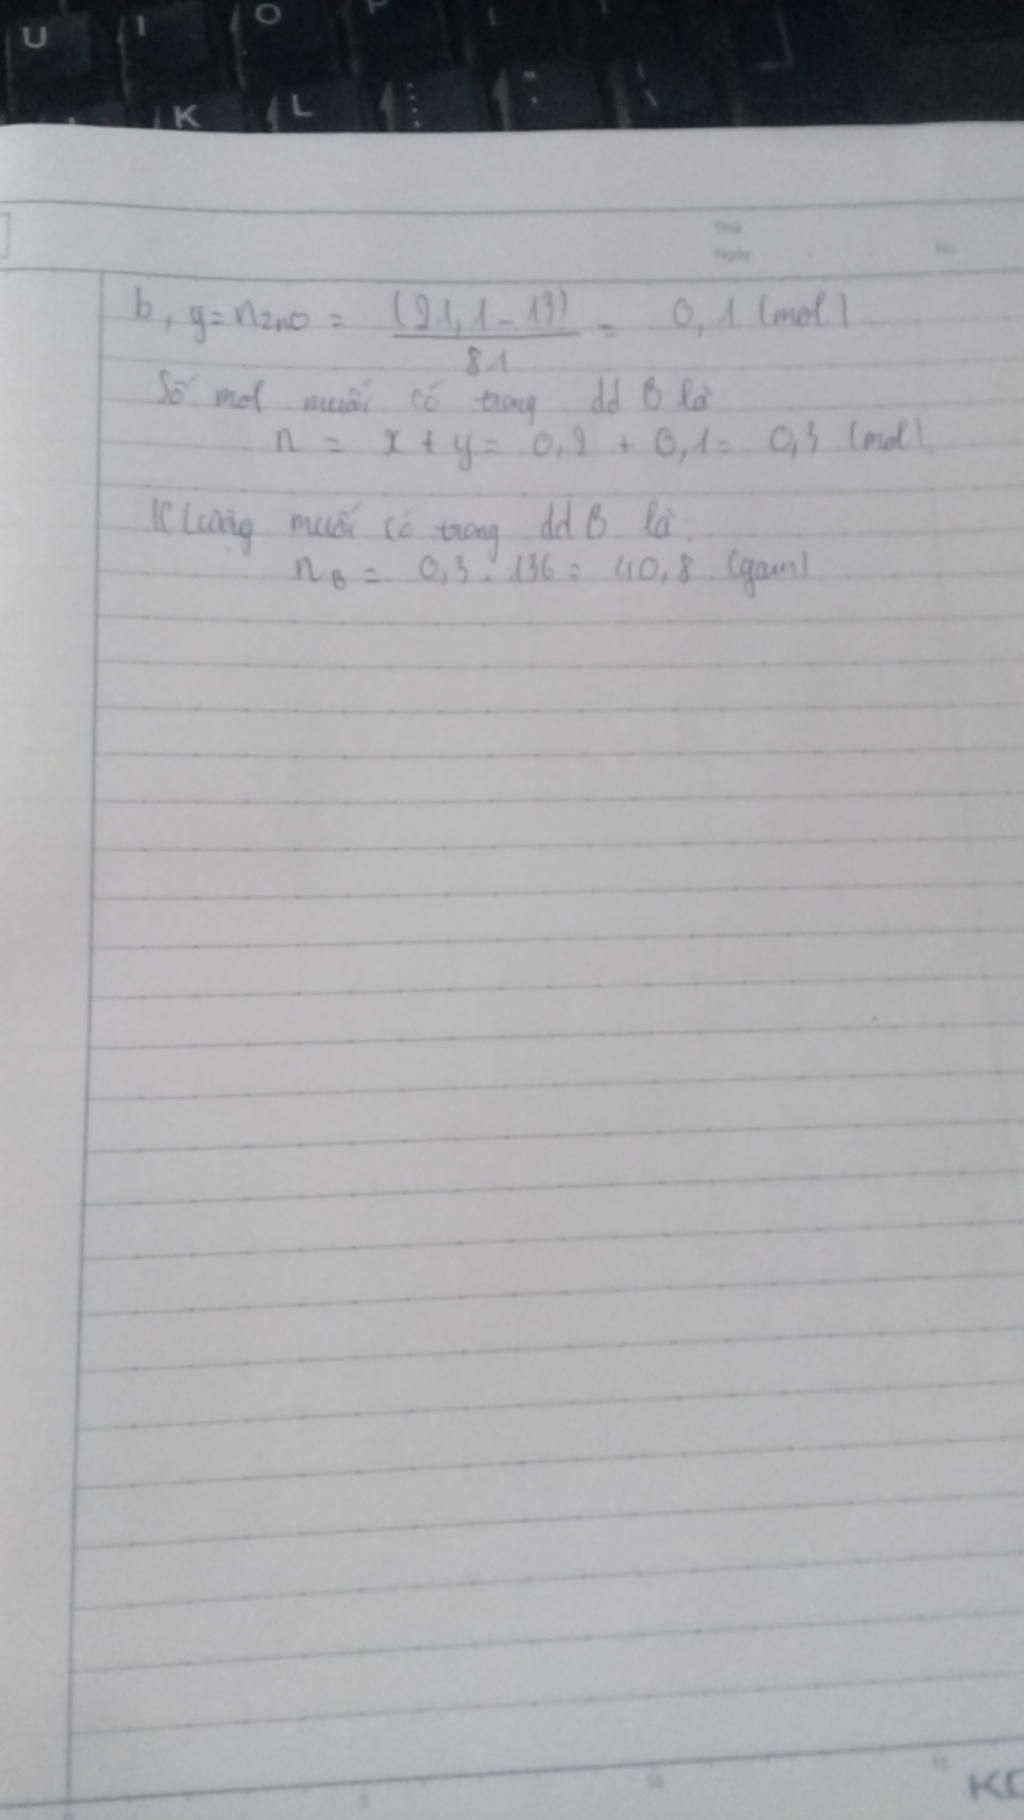 U I O P
K L : "
Thứ
Ngày No.
b, y = nZnO = (21,1 - 13) / 81 = 0,1 (mol)
Số mol muối có trong dd B là:
n = x + y = 0,2 + 0,1 = 0,3 (mol).
K lượng muối có trong dd B là:
nB = 0,3 . 136 = 40,8 (gam)
5 10 15